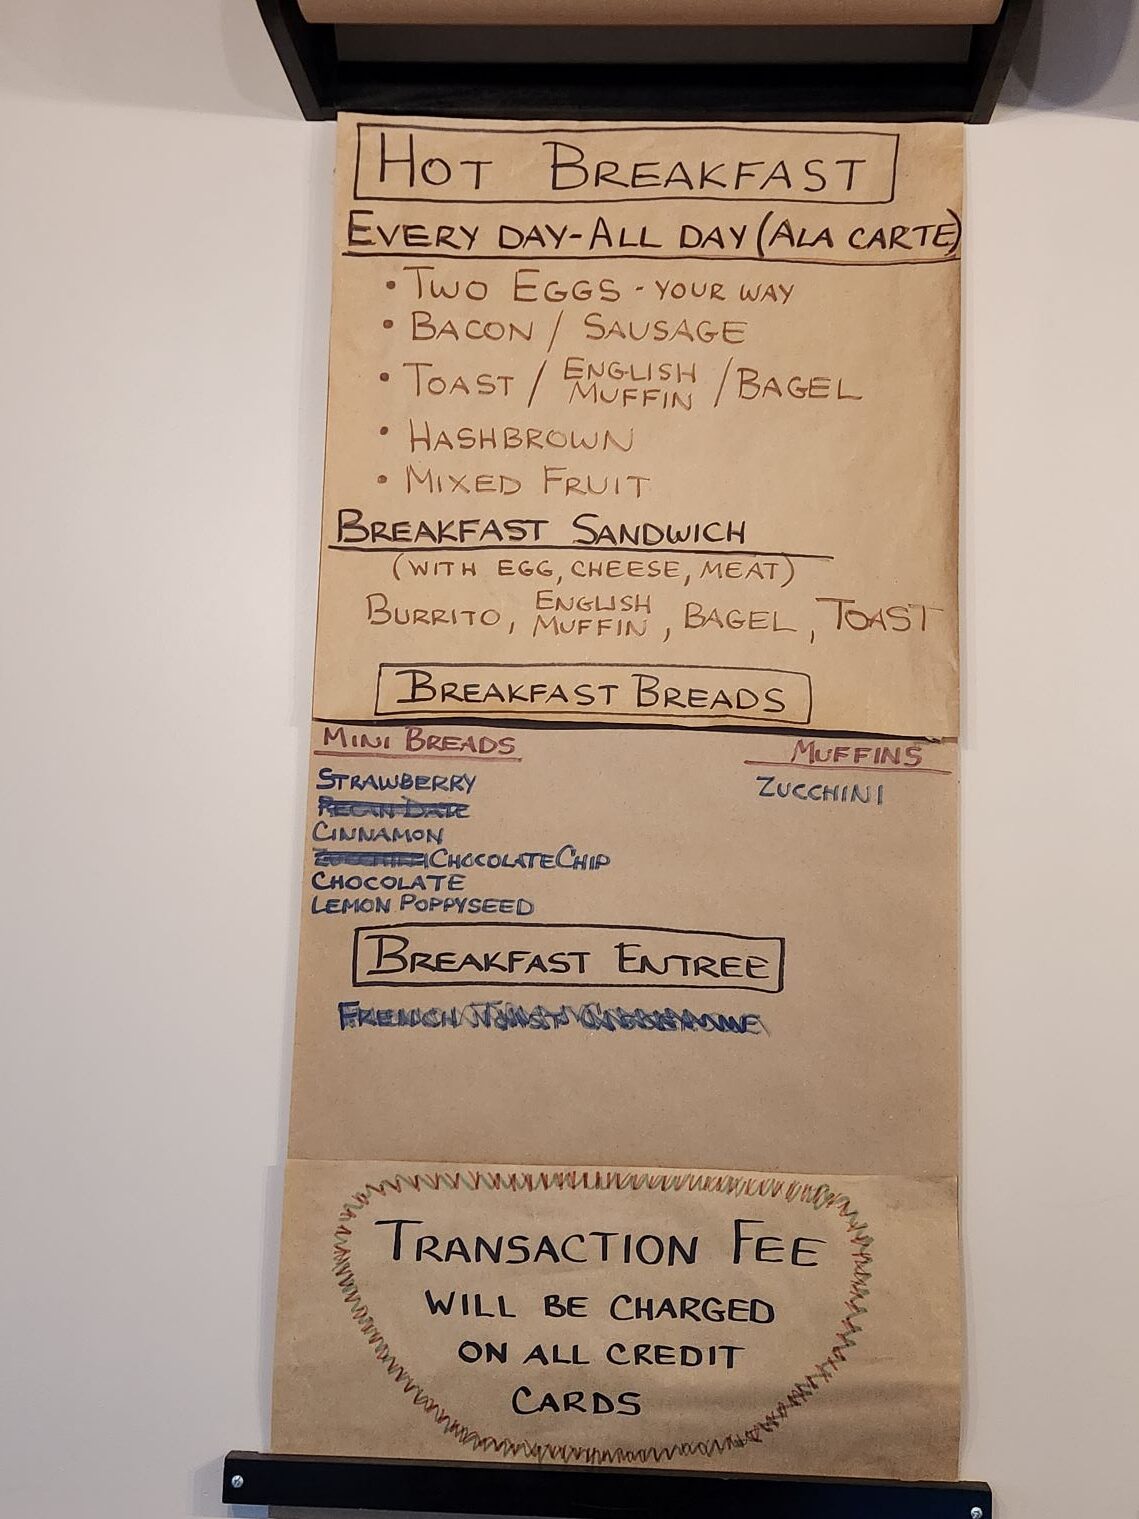 HOT BREAKFAST
EVERY DAY-ALL DAY (ALA CARTE)
• TWO EGGS - YOUR WAY
• BACON / SAUSAGE
• TOAST / ENGLISH MUFFIN / BAGEL
• HASHBROWN
• MIXED FRUIT
BREAKFAST SANDWICH
(WITH EGG, CHEESE, MEAT)
BURRITO, ENGLISH MUFFIN, BAGEL, TOAST
BREAKFAST BREADS
MINI BREADS
STRAWBERRY
PECAN DATE
CINNAMON
CHOCOLATE CHIP
CHOCOLATE
LEMON POPPYSEED
MUFFINS
ZUCCHINI
BREAKFAST ENTREE
FRENCH TOAST
TRANSACTION FEE
WILL BE CHARGED
ON ALL CREDIT
CARDS